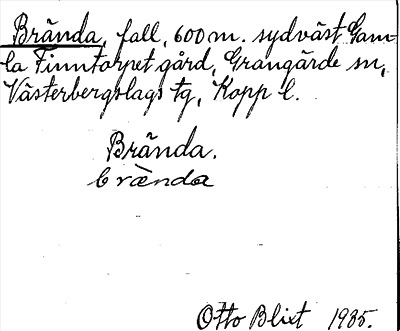 Brända, fall, 600 m. sydväst Gam-
la Finntorpet gård, Grangärde sn,
Västerbergslags tg, Kopp l.
Brända.
brænda
Otto Blixt 1935.